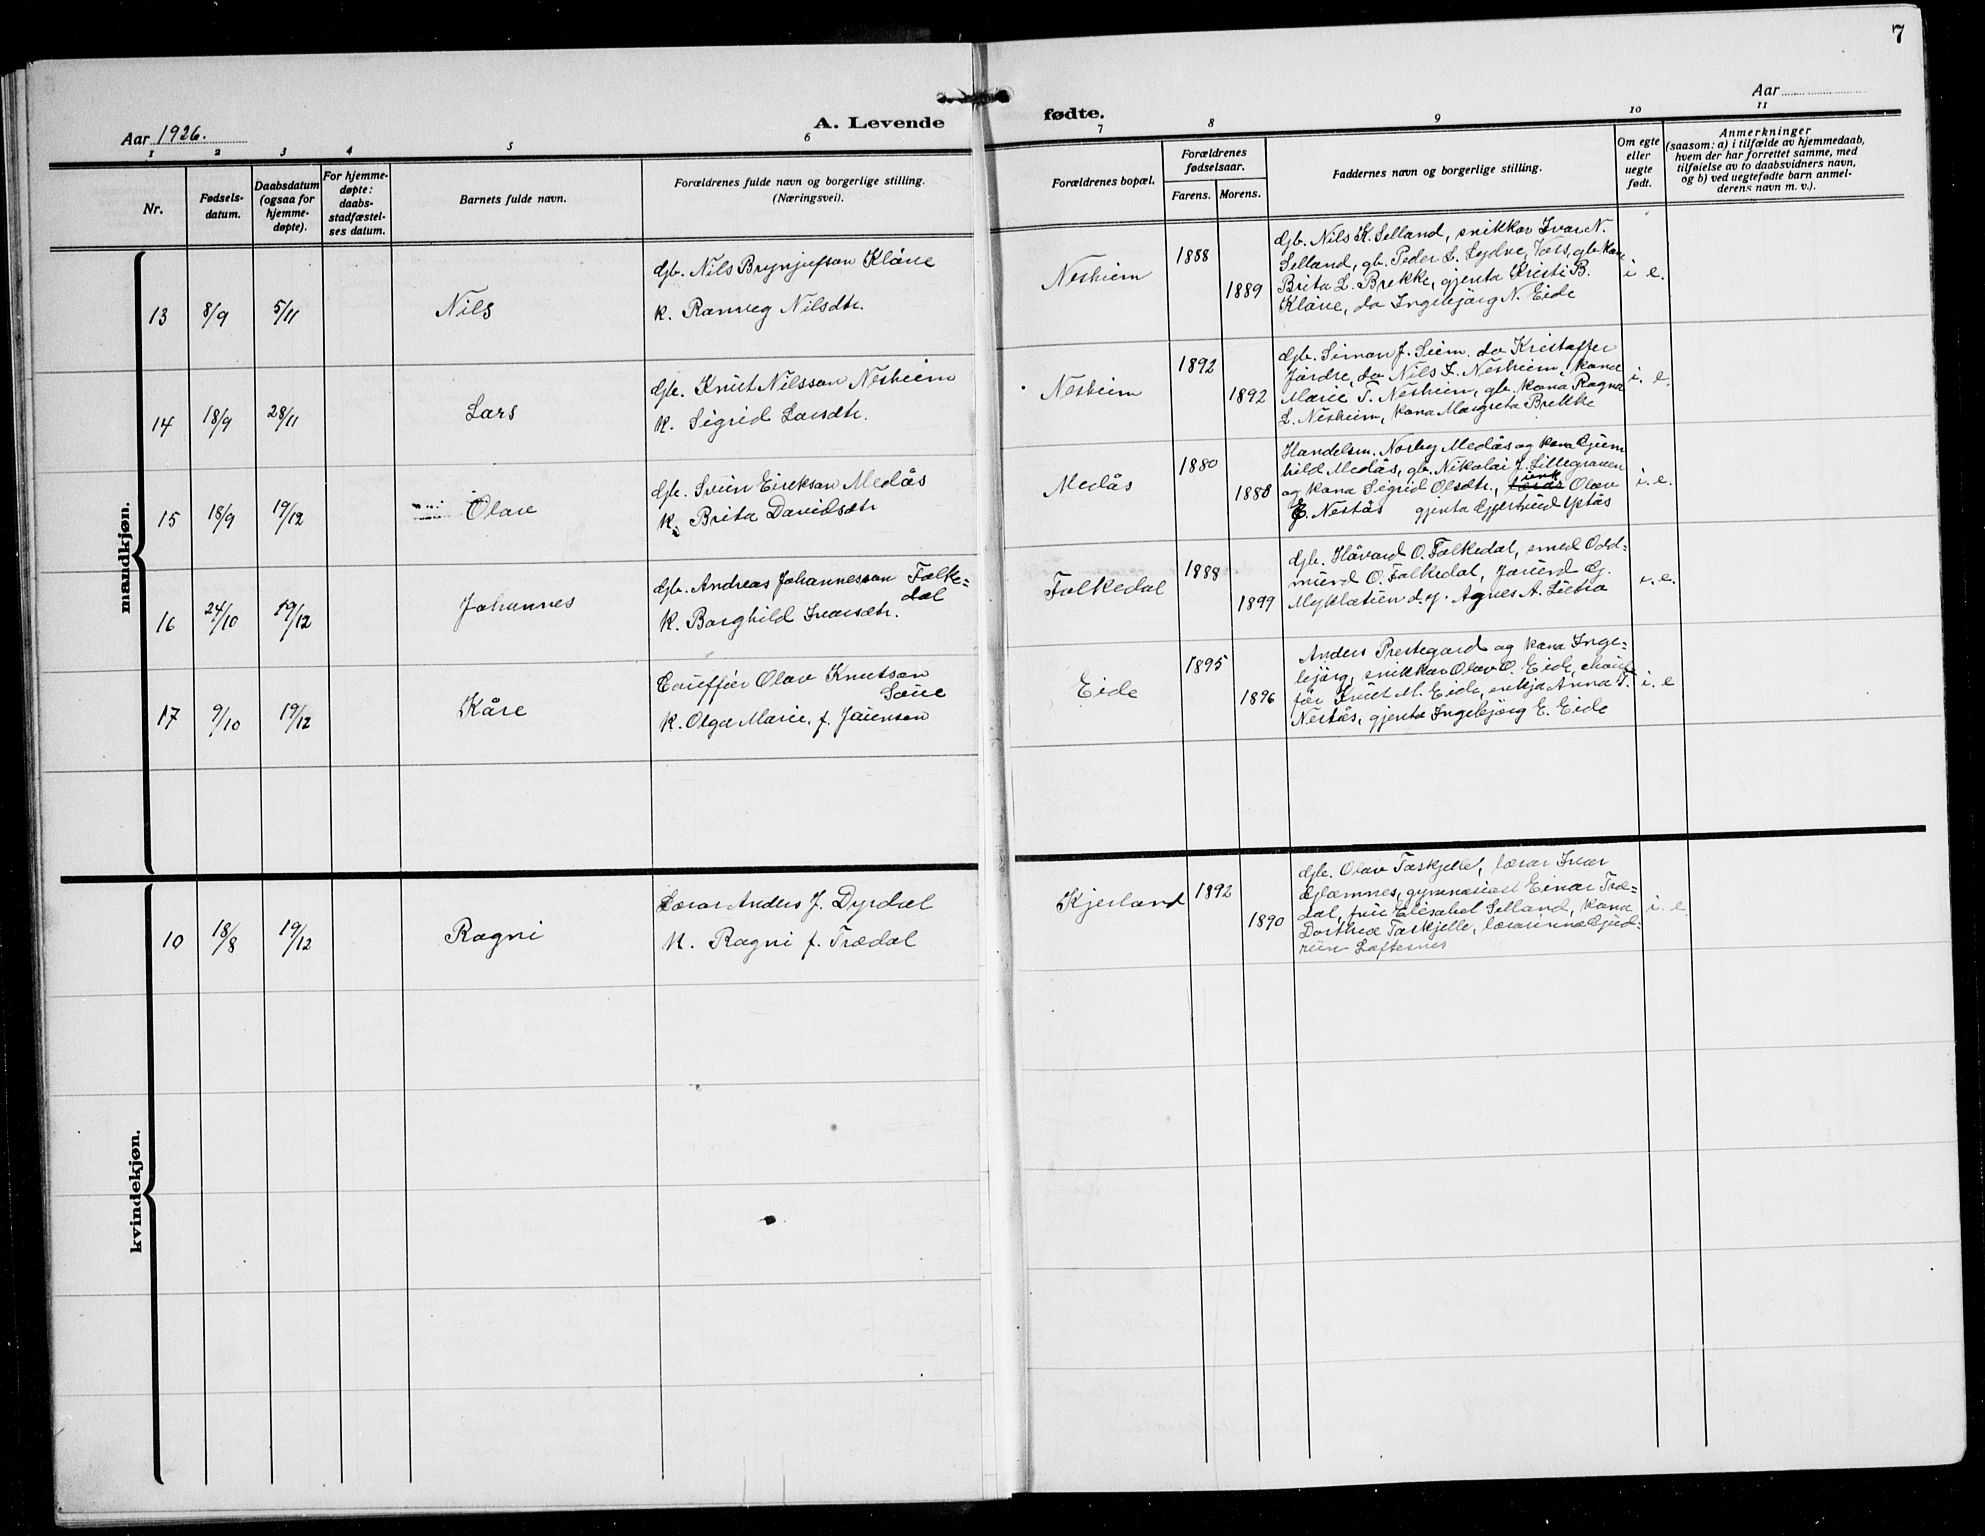 7
Aar 1926.
A. Levende
fødte.
Aar
1
2
3
4
5
6
7
8
9
10
11
Nr.
Fødsels-
datum.
Daabsdatum
(ogsaa for
hjemme-
døpte).
For hjemme-
døpte:
daabs-
stadfæstel-
ses datum.
Barnets fulde navn.
Forældrenes fulde navn og borgerlige stilling.
(Næringsvei).
Forældrenes bopæl.
Forældrenes
fødselsaar.
Farens.
Morens.
Faddernes navn og borgerlige stilling.
Om egte
eller
uegte
født.
Anmerkninger
(saasom: a) i tilfælde av hjemmedaab,
hvem der har forrettet samme, med
tilføielse av to daabsvidners navn,
og b) ved uegtefødte barn anmel-
derens navn m. v.).
mandkjøn.
13 8/9 5/11 Nils
Gb. Nils Brynjulfson Kláve
k. Ranveg Nilsdtr.
Neskeim
1888
1889
Gb. Nils K. Selland, snikkar Ivar N.
Selland, gb. Peder L. Lydve, Voss, gb. kona
Brita L. Brekke, gjenta Kristi B.
Kláve, do Ingebjörg N. Eide
i. e.
14 18/9 28/11 Lars
Gb. Knut Nilsson Neskeim
k. Sigrid Larsdtr.
Neskeim
1892
1892
Gb. Simon J. Seim, do Kristaffer
Jordre, do Nils L. Neskeim, kona
Marie T. Neskeim, gb. kona Ragna
L. Neskeim, kona Margreta Brekke
i. e.
15 18/9 19/12 Olav
Gb. Svein Eirikson Medås
k. Brita Davidsdtr
Medås
1880
1888
Handelsm. Norby Medås og kona Gun
hild Medås, gb. Nikolai J. Lillegraven
og kona Sigrid Olsdtr., Olav
E. Nestås gjenta Gjertrud Ystås
i. e.
16 24/10 19/12 Johannes
Gb. Andreas Johannesson Folke=
dal
k. Borghild Ivarsdtr.
Folkedal
1888
1899
Gb. Håvard O. Folkedal, smed Odd=
mund O. Folkedal, Jorund G.
Mykletun d. y. Agnes A. Lutro
i. e.
17 9/10 19/12 Kåre
Chauffør Olav Knutson
Soue
k. Olga Marie, f. Jensen
Eide
1895
1896
Anders Prestegard og kona Inge=
björg, snikkar Olav O. Eide, chauf
før Knut M. Eide, enkja Anna T.
Nestås, gjenta Ingebjörg E. Eide
i. e
kvindekjøn.
10 18/8 19/12 Ragni
Lærar Anders J. Dyrdal
k. Ragni f. Trædal
Kjerland
1892
1890
Gb. Olav Taskjelle, lærar Ivar
Glamnes, gymnasiast Einar Træ=
dal, frú Elisabet Selland, kona
Dorthea Taskjelle, lærarinna Gud=
run Loftesnes
i. e.